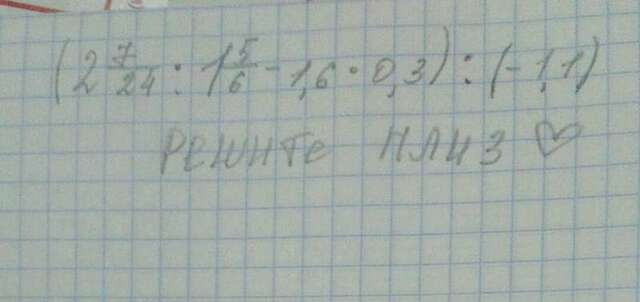 (2 7/24 : 1 5/6 - 1,6 · 0,3) : (-1,1)
РЕШИТЕ ПЛИЗ ♡